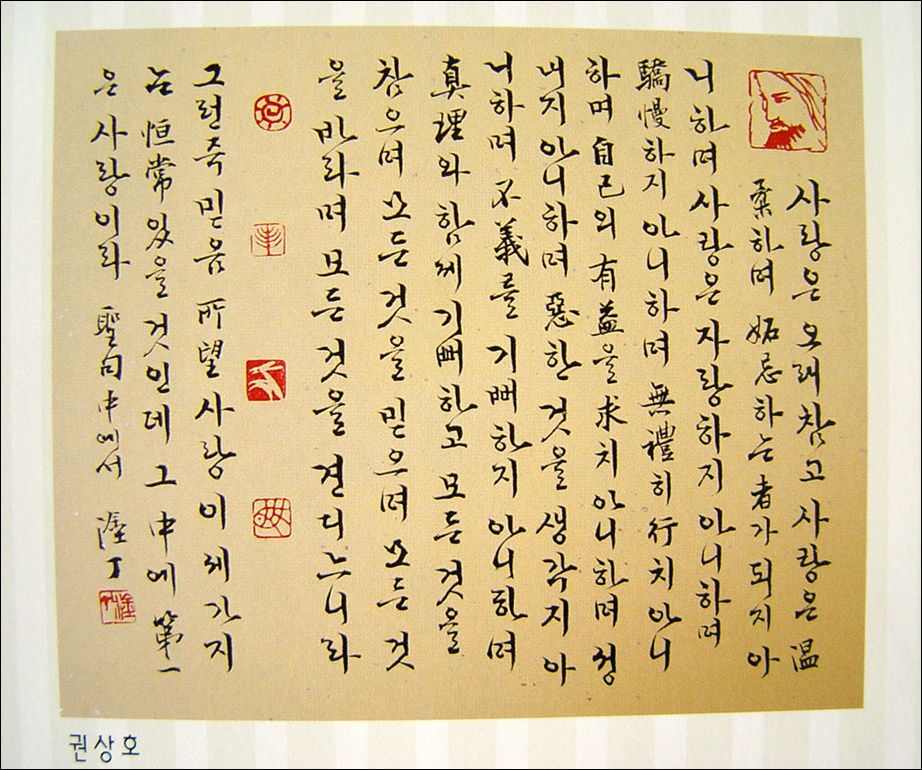 사랑은 오래 참고 사랑은 温
柔하며 妬忌하는 者가 되지 아
니하며 사랑은 자랑하지 아니하며
驕慢하지 아니하며 無禮히 行치 아니
하며 自己의 有益을 求치 아니하며 성
내지 아니하며 惡한 것을 생각지 아
니하며 不義를 기뻐하지 아니하며
真理와 함께 기뻐하고 모든 것을
참으며 모든 것을 믿으며 모든 것
을 바라며 모든 것을 견디느니라
그런즉 믿음 所望 사랑 이 세 가지
는 恒常 있을 것인데 그 中에 第一
은 사랑이라 聖句 中에서 塗丁
권상호